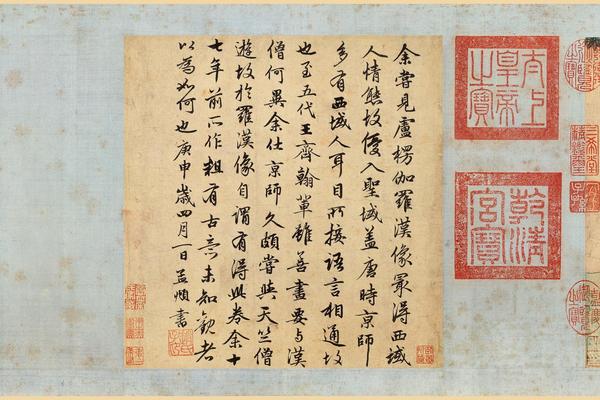 余嘗見盧楞伽羅漢像冣得西域
人情態故優入聖域盖唐時京師
多有西域人耳目所接語言相通故
也至五代王齊翰輩雖善畫要与漢
僧何異余仕京師久頗嘗與天竺僧
遊故於羅漢像自謂有得此卷余十
七年前所作粗有古意未知觀者
以為如何也庚申歲四月一日孟頫書
太上皇帝之寶
乾清宮寶
三希堂精鑑璽
宜子孫
趙氏子昂